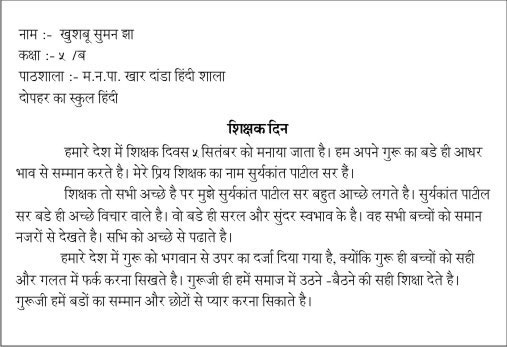 नाम :- खुशबू सुमन झा
कक्षा :- ५ /ब
पाठशाला :- म.न.पा. खार दांडा हिंदी शाला
दोपहर का स्कुल हिंदी
शिक्षक दिन
हमारे देश में शिक्षक दिवस ५ सितंबर को मनाया जाता है। हम अपने गुरू का बडे ही आधर
भाव से सम्मान करते है। मेरे प्रिय शिक्षक का नाम सुर्यकांत पाटील सर हैं।
शिक्षक तो सभी अच्छे है पर मुझे सुर्यकांत पाटील सर बहुत आच्छे लगते है। सुर्यकांत पाटील
सर बडे ही अच्छे विचार वाले है। वो बडे ही सरल और सुंदर स्वभाव के है। वह सभी बच्चों को समान
नजरों से देखते है। सभि को अच्छे से पढाते है।
हमारे देश में गुरू को भगवान से उपर का दर्जा दिया गया है, क्योंकि गुरू ही बच्चों को सही
और गलत में फर्क करना सिखते है। गुरूजी ही हमें समाज में उठने -बैठने की सही शिक्षा देते है।
गुरूजी हमें बडों का सम्मान और छोटों से प्यार करना सिकाते है।